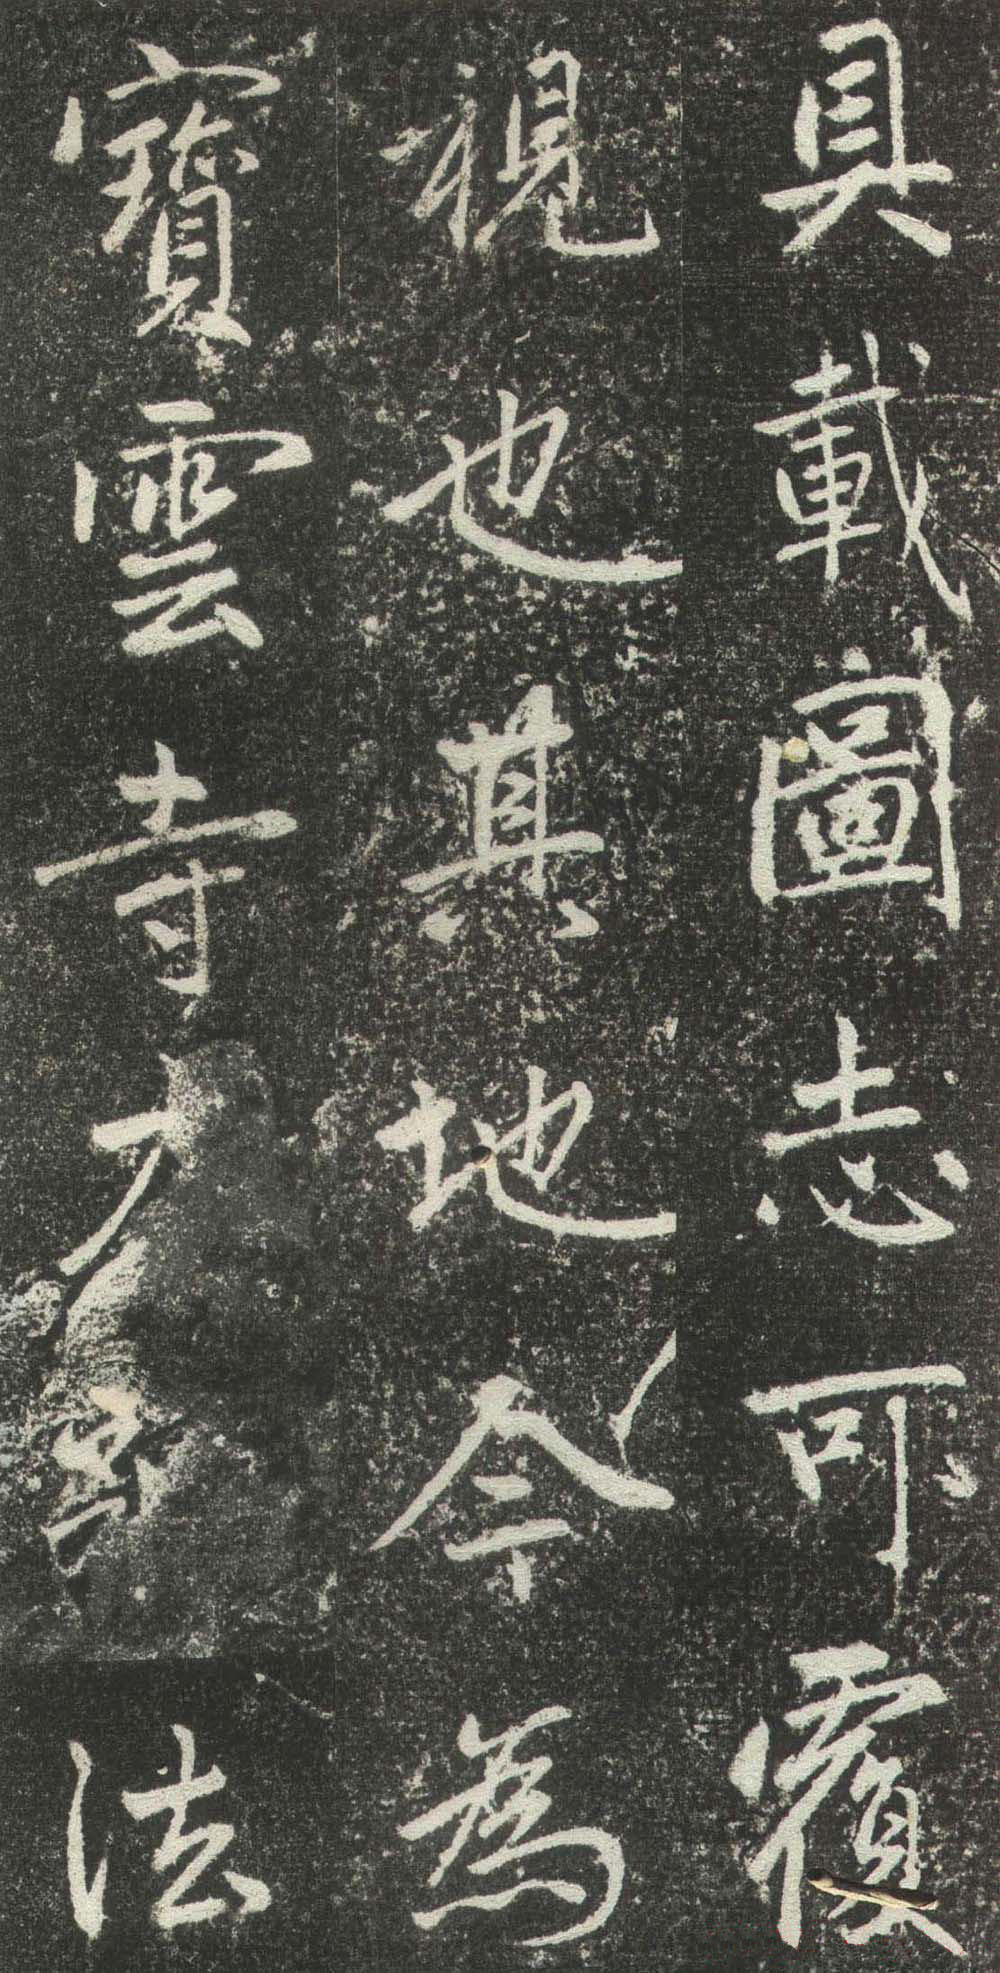 具載圖志可覆
視也其地今為
寶雲寺大䡄法